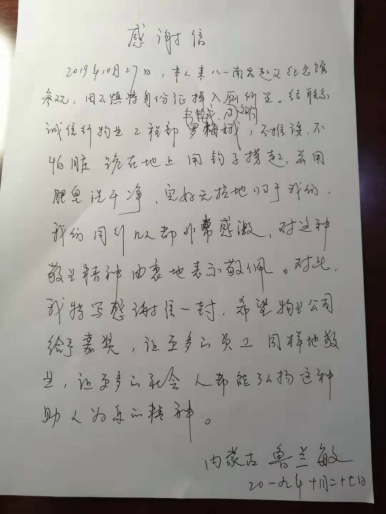 感谢信
2019年10月27日,本人来八一南昌起义纪念馆
参观,因不慎将身份证掉入厕所里,经联系
诚信行物业工程部 不推诿、不
怕脏 跪在地上用钩子捞起,并用
肥皂洗干净,完好无损地归于我们,
我们同行几人都非常感激,对这种
敬业精神由衷地表示敬佩。对此,
我特写感谢信一封,希望物业公司
给予嘉奖,让更多的员工同样地敬
业,让更多的社会人都能弘扬这种
助人为乐的精神。
内蒙古 鲁兰敏
二0一九年十月二十七日